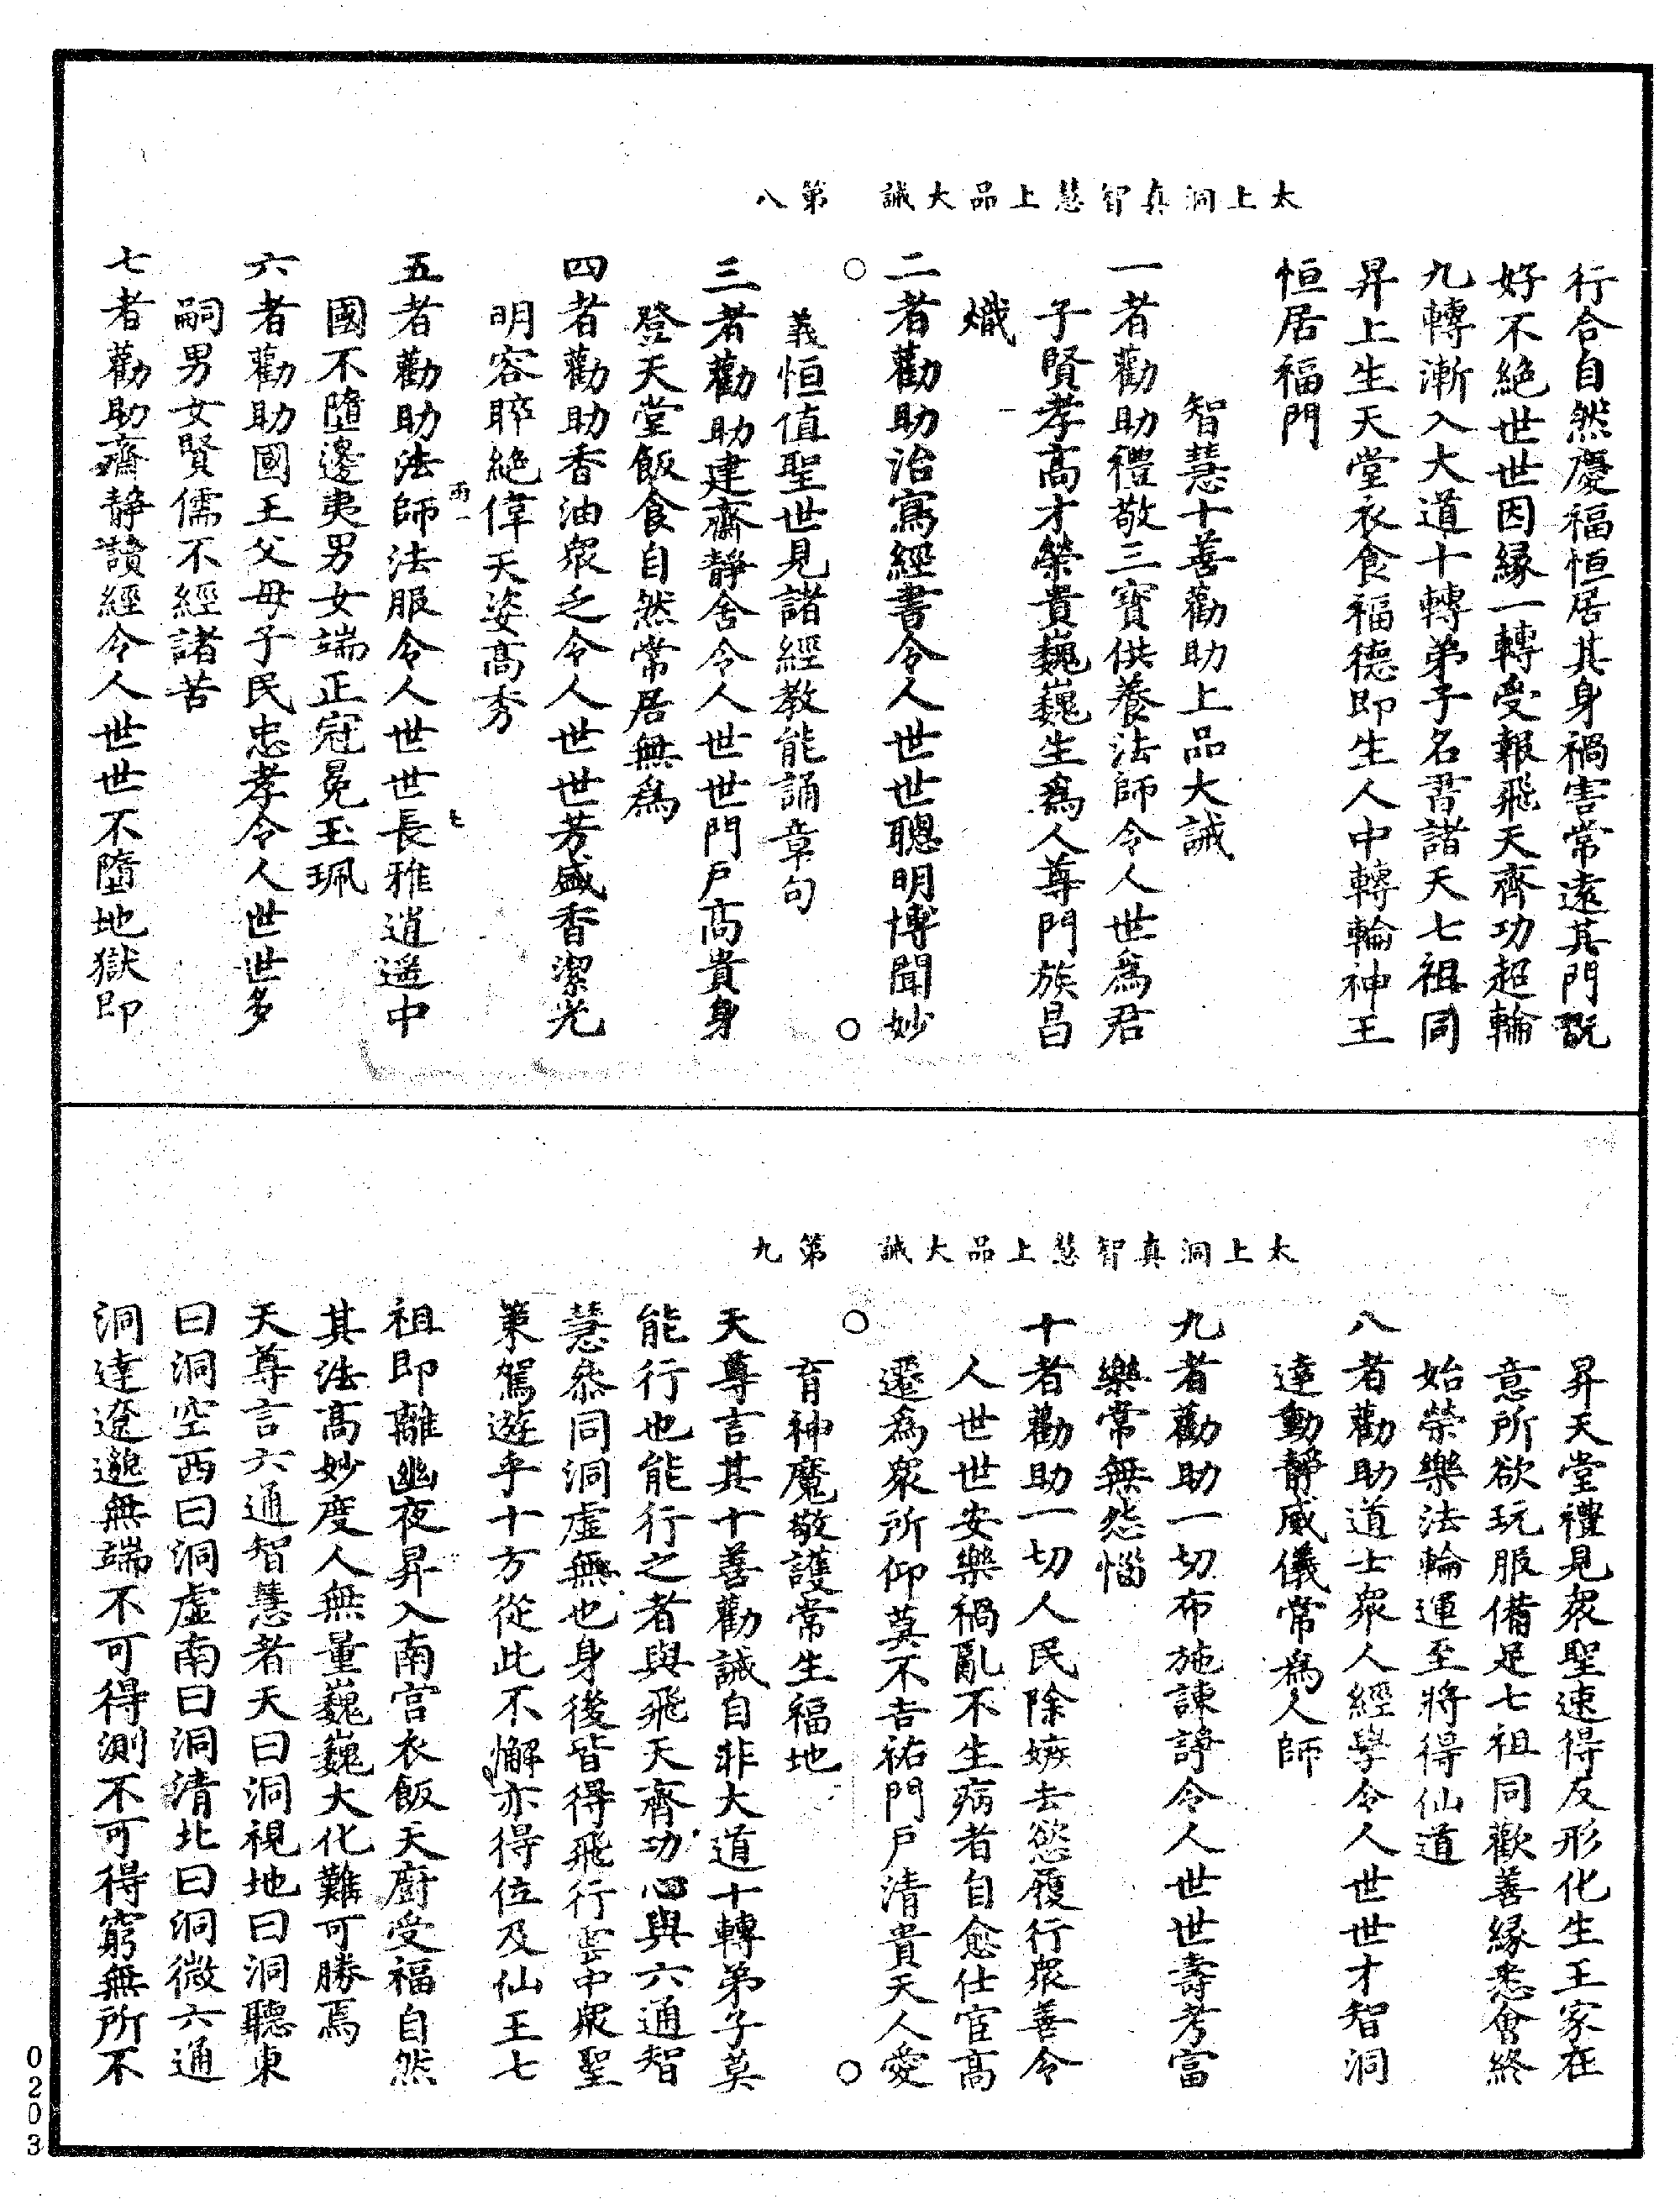 太上洞真智慧上品大誡　第八
行合自然慶福恒居其身禍害常遠其門既
好不絕世世因緣一轉受報飛天齊功超輪
九轉漸入大道十轉弟子名書諸天七祖同
昇上生天堂衣食福德即生人中轉輪神王
恒居福門
智慧十善勸助上品大誡
一者勸助禮敬三寶供養法師令人世為君
子賢孝高才榮貴巍巍生為人尊門族昌
熾
二者勸助治寫經書令人世世聰明博聞妙
義恒值聖世見諸經教能誦章句
三者勸助建齋靜舍令人世世門戶高貴身
登天堂飯食自然常居無為
四者勸助香油眾乏令人世世芳盛香潔光
明容睟絕偉天姿高秀
五者勸助法師法服令人世世長雅逍遙中
國不墮邊夷男女端正冠冕玉珮
六者勸助國王父母子民忠孝令人世世多
嗣男女賢儒不經諸苦
七者勸助齋靜讀經令人世世不墮地獄即
太上洞真智慧上品大誡　第九
昇天堂禮見眾聖速得反形化生王家在
意所欲玩服備足七祖同歡善緣悉會終
始榮樂法輪運至將得仙道
八者勸助道士眾人經學令人世世才智洞
達動靜威儀常為人師
九者勸助一切布施諫諍令人世世壽考富
樂常無怨惱
十者勸助一切人民除嫉去慾履行眾善令
人世世安樂禍亂不生病者自愈仕宦高
遷為眾所仰莫不吉祐門戶清貴天人愛
育神魔敬護常生福地
天尊言其十善勸誡自非大道十轉弟子莫
能行也能行之者與飛天齊功心與六通智
慧叅同洞虛無也身後皆得飛行雲中眾聖
策駕遊乎十方從此不懈亦得位及仙王七
祖即離幽夜昇入南宮衣飯天廚受福自然
其法高妙度人無量巍巍大化難可勝焉
天尊言六通智慧者天曰洞視地曰洞聽東
曰洞空西曰洞虛南曰洞清北曰洞微六通
洞達遼邈無端不可得測不可得窮無所不
0203